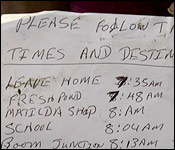 PLEASE FOLLOW T
TIMES AND DESTIN
LEAVE HOME 7:35AM
FRESHPOND 7:48AM
MATILDA SHOP 8:AM
SCHOOL 8:04AM
BOOM JUNCTION 8:13AM